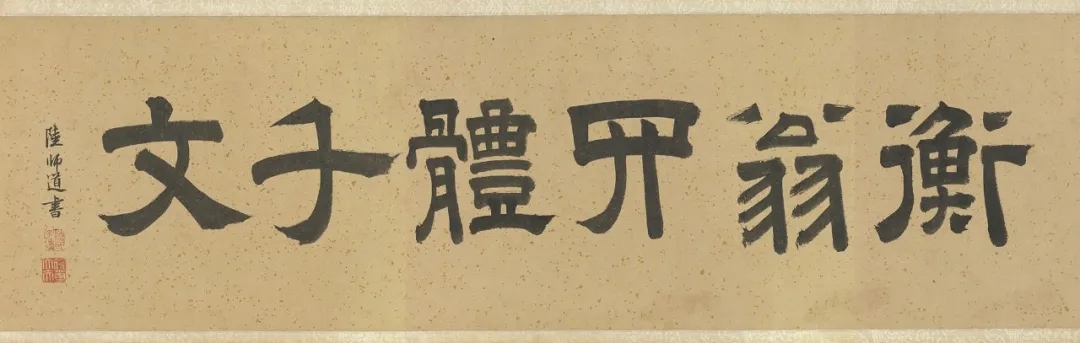 衡翁四體千文
陸師道書